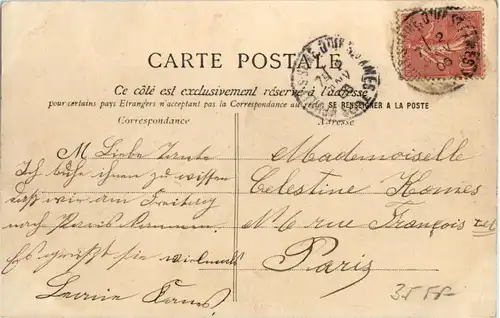 CARTE POSTALE
Ce côté est exclusivement réservé à l'adresse
pour certains pays Etrangers n'acceptant pas la Correspondance au recto SE RENSEIGNER A LA POSTE
Correspondance
Adresse
M Liebe Tante
Ich ihnen zu wissen
wir am Freitag
nach Paris kommen.
Es grüsst sie vielmals
Mademoiselle
Celestine
N° 6 rue François
Paris